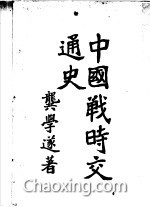 中國戰時交
通史
龔學遂著
Chaoxing.com